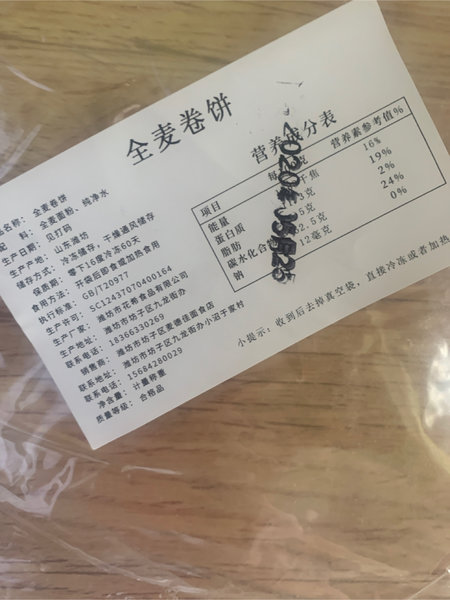 全麦卷饼
品名称： 全麦卷饼
配 料： 全麦面粉、纯净水
生产日期： 见打码
生产产地： 山东潍坊
储存方式： 冷冻储存，干燥通风储存
保质期： 零下16度冷冻60天
食用方法： 开袋后即食或加热食用
执行标准： GB/T20977
生产许可： SC12437070400164
生产厂家： 潍坊市花希食品有限公司
生产地址： 潍坊市坊子区九龙街办
联系电话： 18366330269
销售商： 潍坊市坊子区麦德佳面食店
联系地址： 潍坊市坊子区九龙街办小沼子家村
联系电话： 15684280029
净含量： 计量称重
质量等级： 合格品
营养成分表
项目 每 克 营养素参考值%
能量 千焦 16%
蛋白质 克 19%
脂肪 5克 2%
碳水化合 2.5克 24%
钠 12毫克 0%
2020年05月25
小提示：收到后去掉真空袋，直接冷冻或者加热